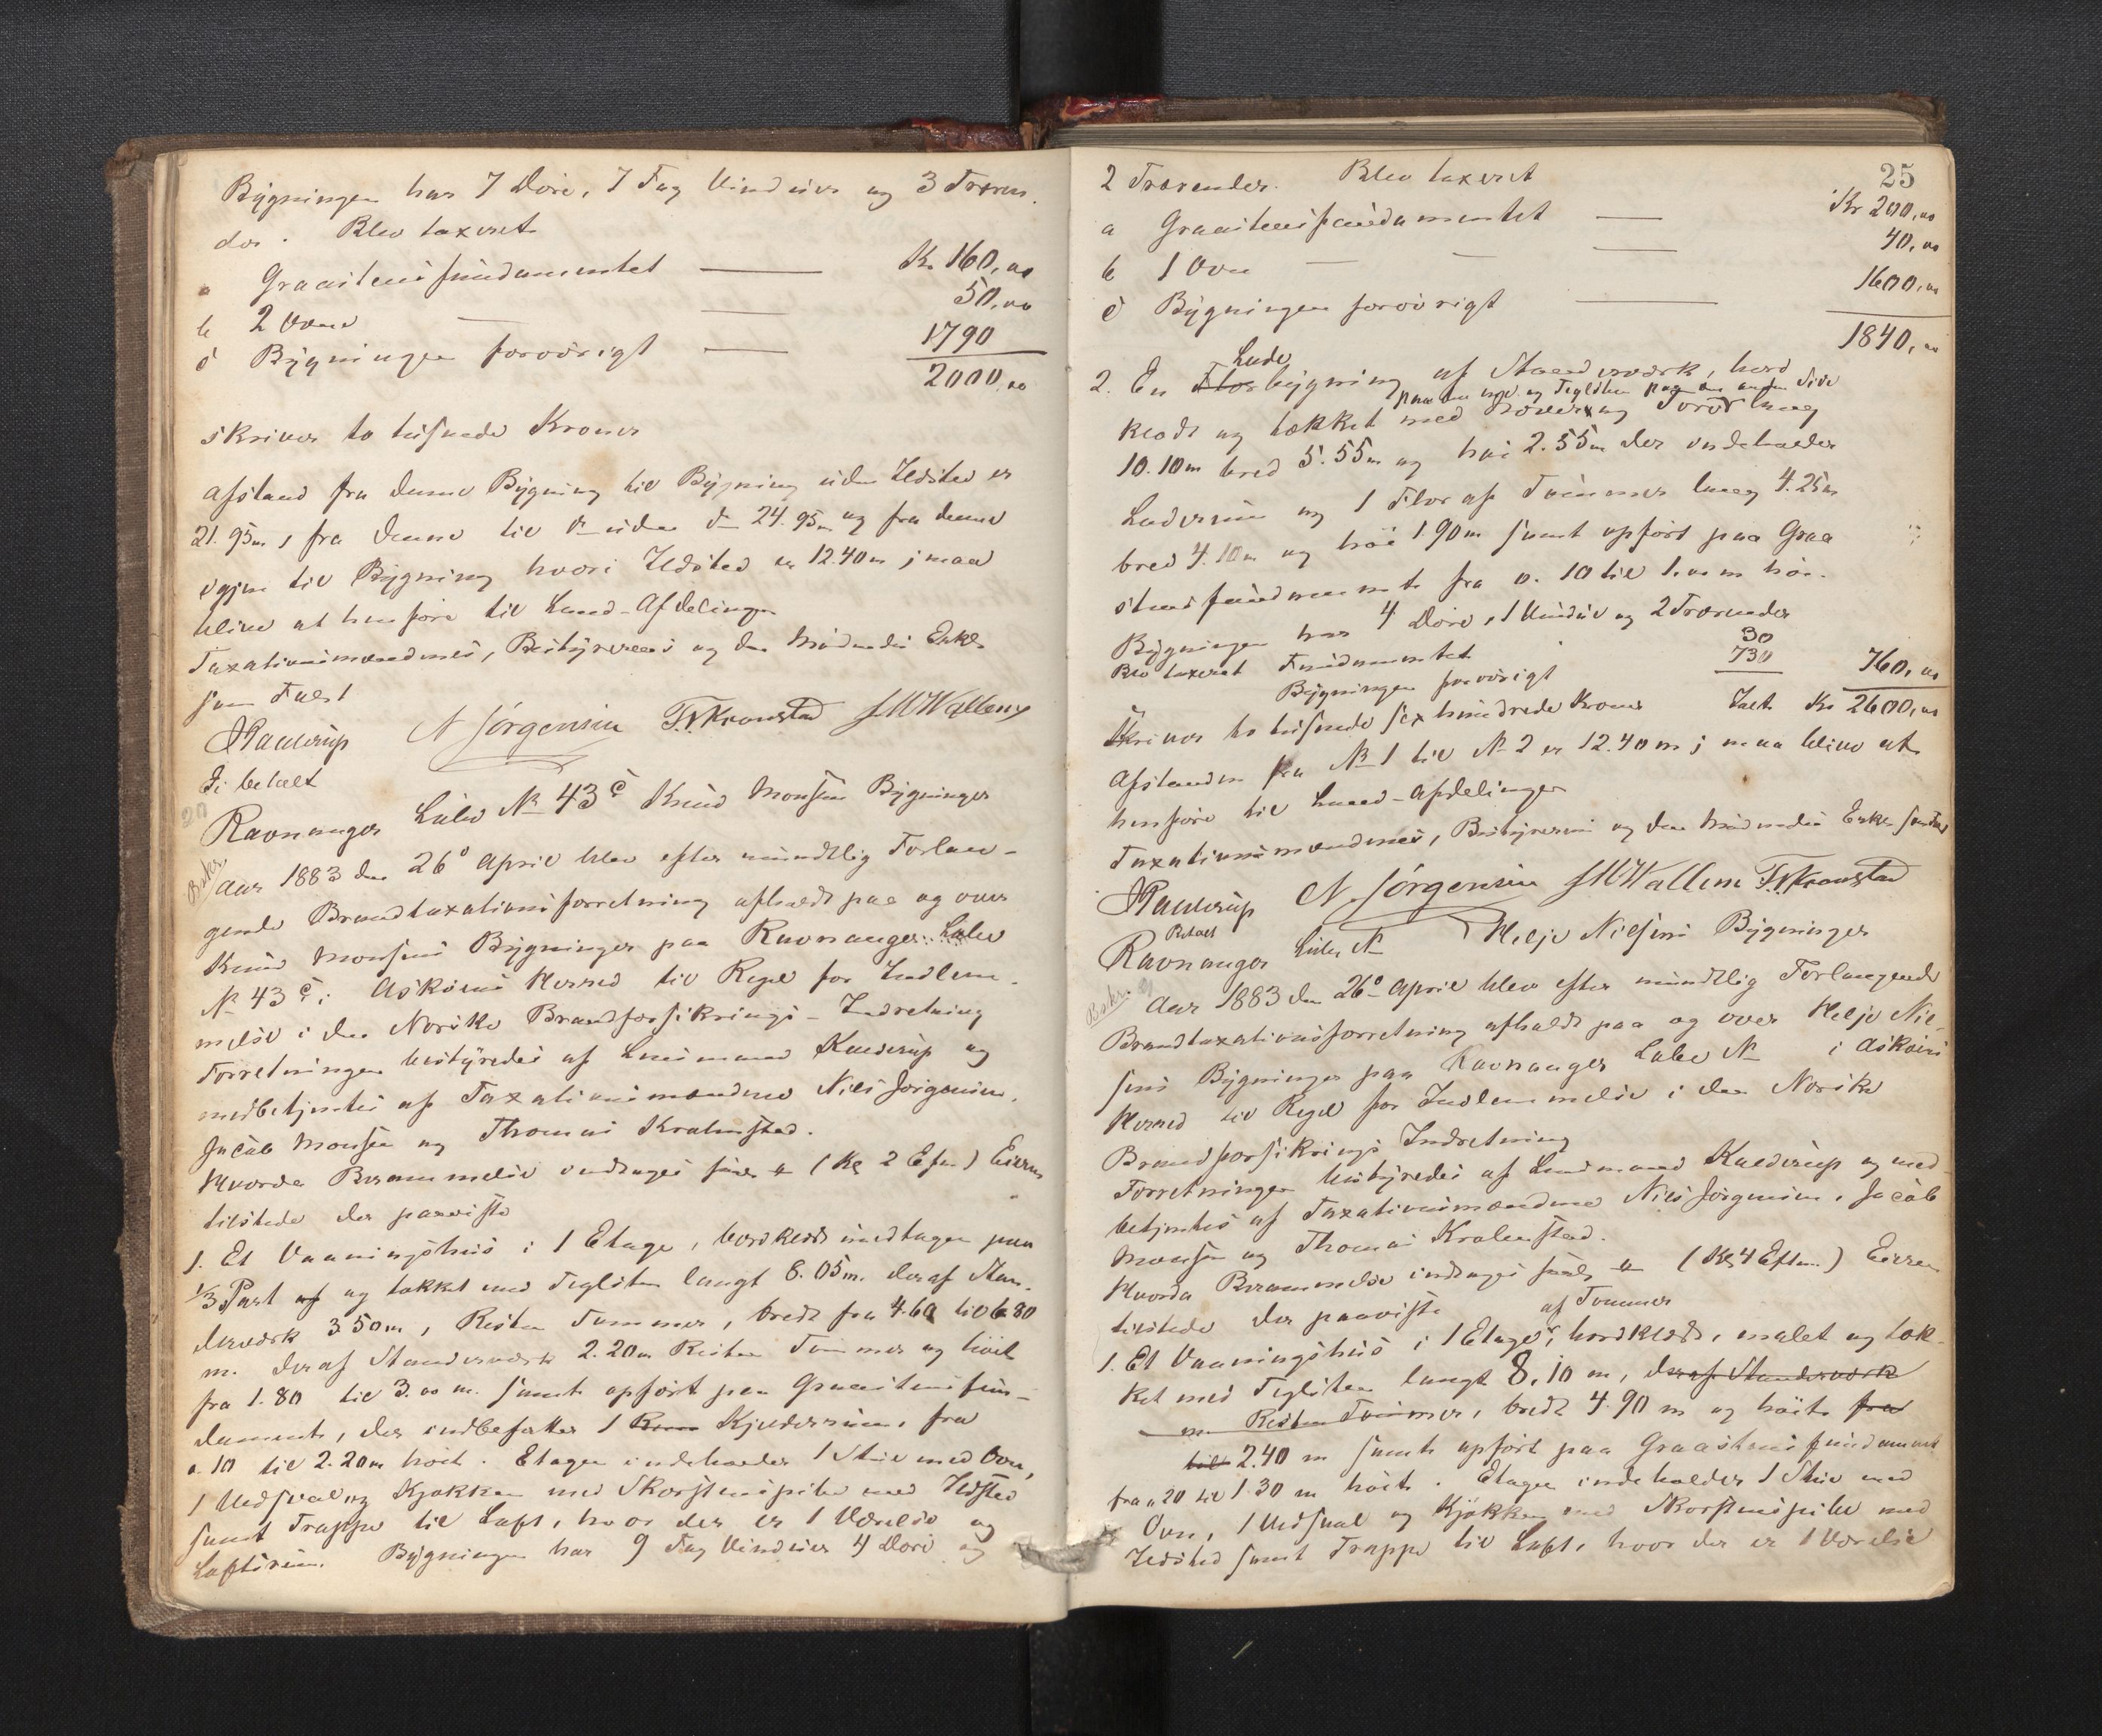 Bygningen har 7 Döre, 7 Fag Vinduer og 3 Træren
der. Blev taxeret
a Graastensfundamentet — Kr 160,00
b 2 Ovne — — 50,00
c Bygningen forövrigt — 1790
2000,00
skriver to tusende Kroner
Afstand fra denne Bygning til Bygning uden Ildsted er
21.95m, fra denne til Do uden Do 24.95m og fra denne
igjen til Bygning hvori Ildsted er 12.40m; maa
blive at henföre til Land-Afdelingen
Taxationsmændenes, Bestyrerens og den mundtlige
som Falst
N Jörgensen T. Kronstad JMWallem
Er betalt
20
Ravnanger Löbe No 43 c Knud Monsens Bygninger
Bokf.
Aar 1883 den 26de April blev efter mundtlig Forlan-
gende Brandtaxationsforretning afholdt paa og over
Knud Monsens Bygninger paa Ravnanger Löbe
No 43 c i Asköens Herred til Regel for Indlem-
melse i den Norske Brandforsikrings-Indretning
Forretningen bestyredes af Lensmand og
medbetjentes af Taxationsmændene Niels Jörgensen,
Jacob Monsen og Thomas Krohnstad.
Hvorda Berammelse (Kl 2 Efm) Eieren
tilstede der paaviste
1. Et Vaaningshus i 1 Etage, bordklædt undtagen paa
1/3 Part af og tækket med Tegelsten langt 8.05m. deraf Stan-
derværk 3.50m, Resten Tømmer, bredt fra 4.60 til 6.80
m. deraf Standerværk 2.20m Resten Tømmer og höit
fra 1.80 til 3.00 m. samt opfört paa Graastensfun-
dament, der indbefatter 1 Rum Kjelderrum, fra
0.10 til 2.20m höit. Etagen indeholder 1 Stue med Ovn,
1 Vedsval og Kjøkken med Skorstenspibe med Ildsted
samt Trappe til Loft, hvor der er 1 Værelse og
Loftsrum. Bygningen har 9 Fag Vinduer 4 Döre og
25
2 Trærender. Blev taxeret
a Graastensfundamentet — Kr 200,00
b 1 Ovn — — — 40,00
c Bygningen forövrigt — 1600,00
1840,00
Lade
2. En Florbygning af Standerværk, bord
paa den ene og Teglsten paa den anden Side
klædt og tækket med Never og Torv lang
10.10m bred 5.55m og höi 2.55m der indeholder
Laderum og 1 Flor af Tømmer lang 4.25m
bred 4.10m og höi 1.90m samt opfört paa Graa
stensfundament fra 0.10 til 1.00m höi.
Bygningen har 4 Döre, 1 Vindue og 2 Trærender
Blev taxeret Fundamentet 30
Bygningen forövrigt 730 760,00
Skriver to tusende sex hundrede Kroner Ialt Kr 2600,00
Afstanden fra No 1 til No 2 er 12.40m; maa blive at
henföre til Land-Afdelingen
Taxationsmændenes, Bestyrerens og den mundtlige
N. Jörgensen JMWallem T. Kronstad
Betalt
Ravnanger Löbe No Helje Nielsens Bygninger
Bokf. 21
Aar 1883 den 26de April blev efter mundtlig Forlangende
Brandtaxationsforretning afholdt paa og over Helje Niel-
sens Bygninger paa Ravnanger Löbe No i Asköens
Herred til Regel for Indlemmelse i den Norske
Brandforsikrings Indretning
Forretningen bestyredes af Lensmand og med-
betjentes af Taxationsmændene Niels Jörgensen, Jacob
Monsen og Thomas Krohnstad.
Hvorda Berammelse (Kl 4 Eftm.) Eieren
tilstede der paaviste
af Tømmer
1. Et Vaaningshus i 1 Etage, bordklædt, malet og tæk-
ket med Teglsten langt 8.10 m, deraf Standerværk
m Resten Tømmer, bredt 4.90 m og höit fra
til 2.40 m samt opfört paa Graastensfundament
fra 0.20 til 1.30 m höit. Etagen indeholder 1 Stue med
Ovn, 1 Vedsval og Kjökken med Skorstenspibe med
Ildsted samt Trappe til Loft, hvor der er 1 Værelse